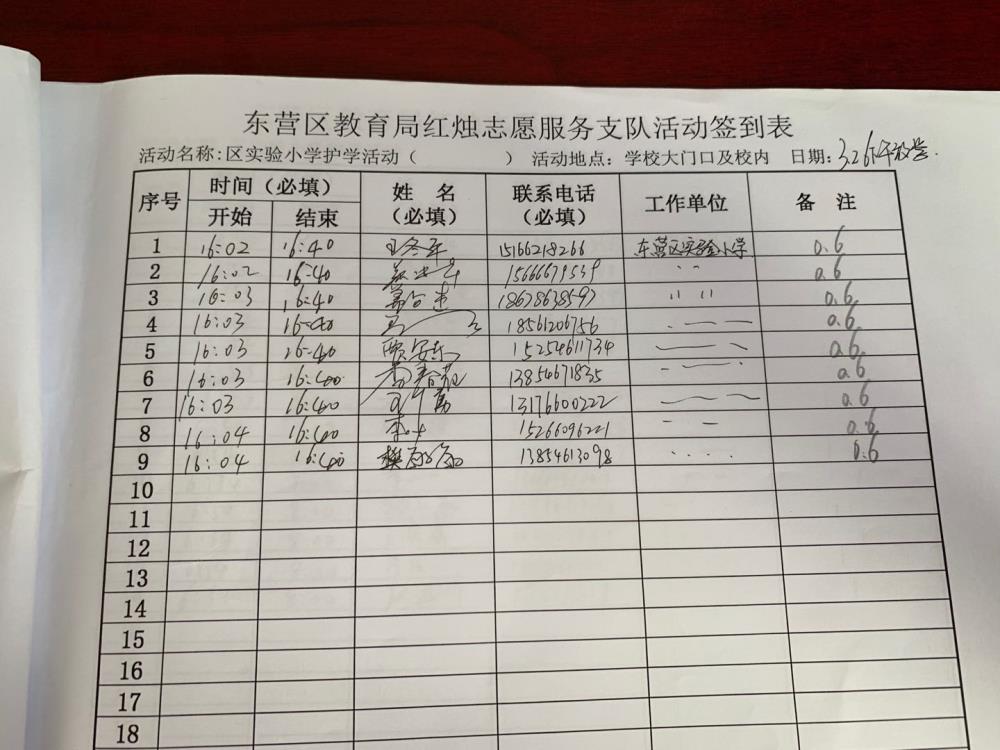 东营区教育局红烛志愿服务支队活动签到表
活动名称:区实验小学护学活动（ ） 活动地点：学校大门口及校内 日期: 3.26
序号 时间（必填） 姓名（必填） 联系电话（必填） 工作单位 备注
开始 结束
1 16:02 16:40 王冬年 15166218266 东营区实验小学 0.6
2 16:02 16:40 15666679539 〃 0.6
3 16:03 16:40 18678638597 〃 〃 0.6
4 16:03 16:40 18561206756 0.6
5 16:03 16:40 15254611734 0.6
6 16:03 16:40 13854671835 0.6
7 16:03 16:40 13176600222 0.6
8 16:04 16:40 15266096221 0.6
9 16:04 16:40 13854613098 0.6
10
11
12
13
14
15
16
17
18